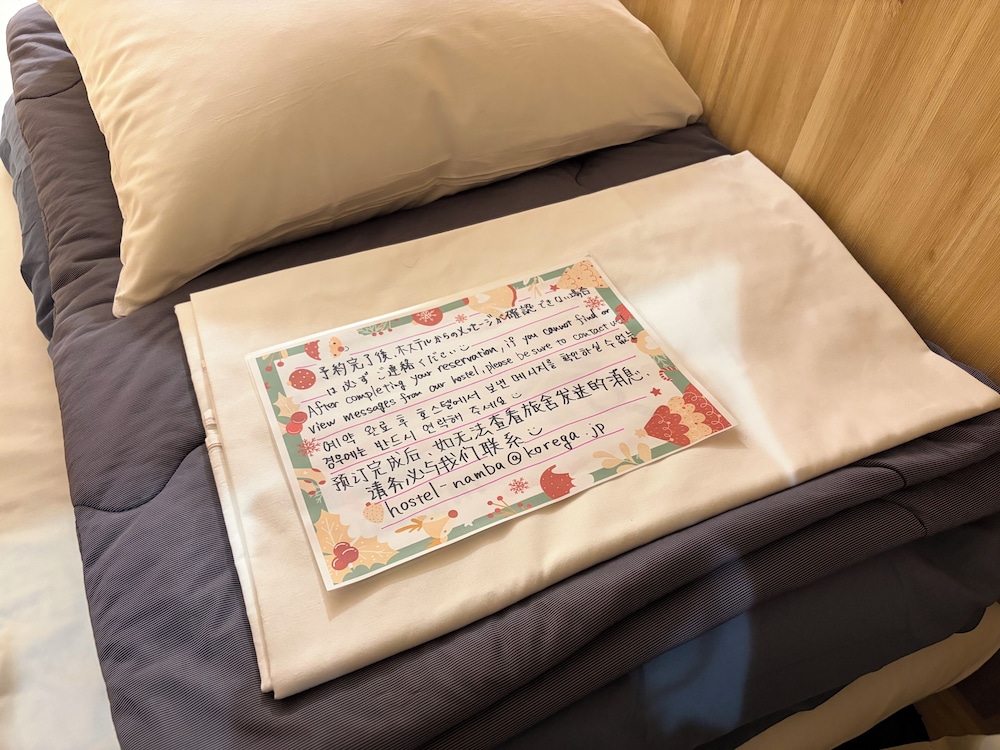 予約完了後、ホステルからのメッセージが確認できない場合
は必ずご連絡ください
After completing your reservation, if you cannot find or
view messages from our hostel, please be sure to contact us!
예약 완료 후 호스텔에서 보낸 메시지를 확인하실 수 없는
경우에는 반드시 연락해 주세요
预订完成后、如无法查看旅舍发送的消息、
请务必与我们联系
hostel-namba@korega.jp